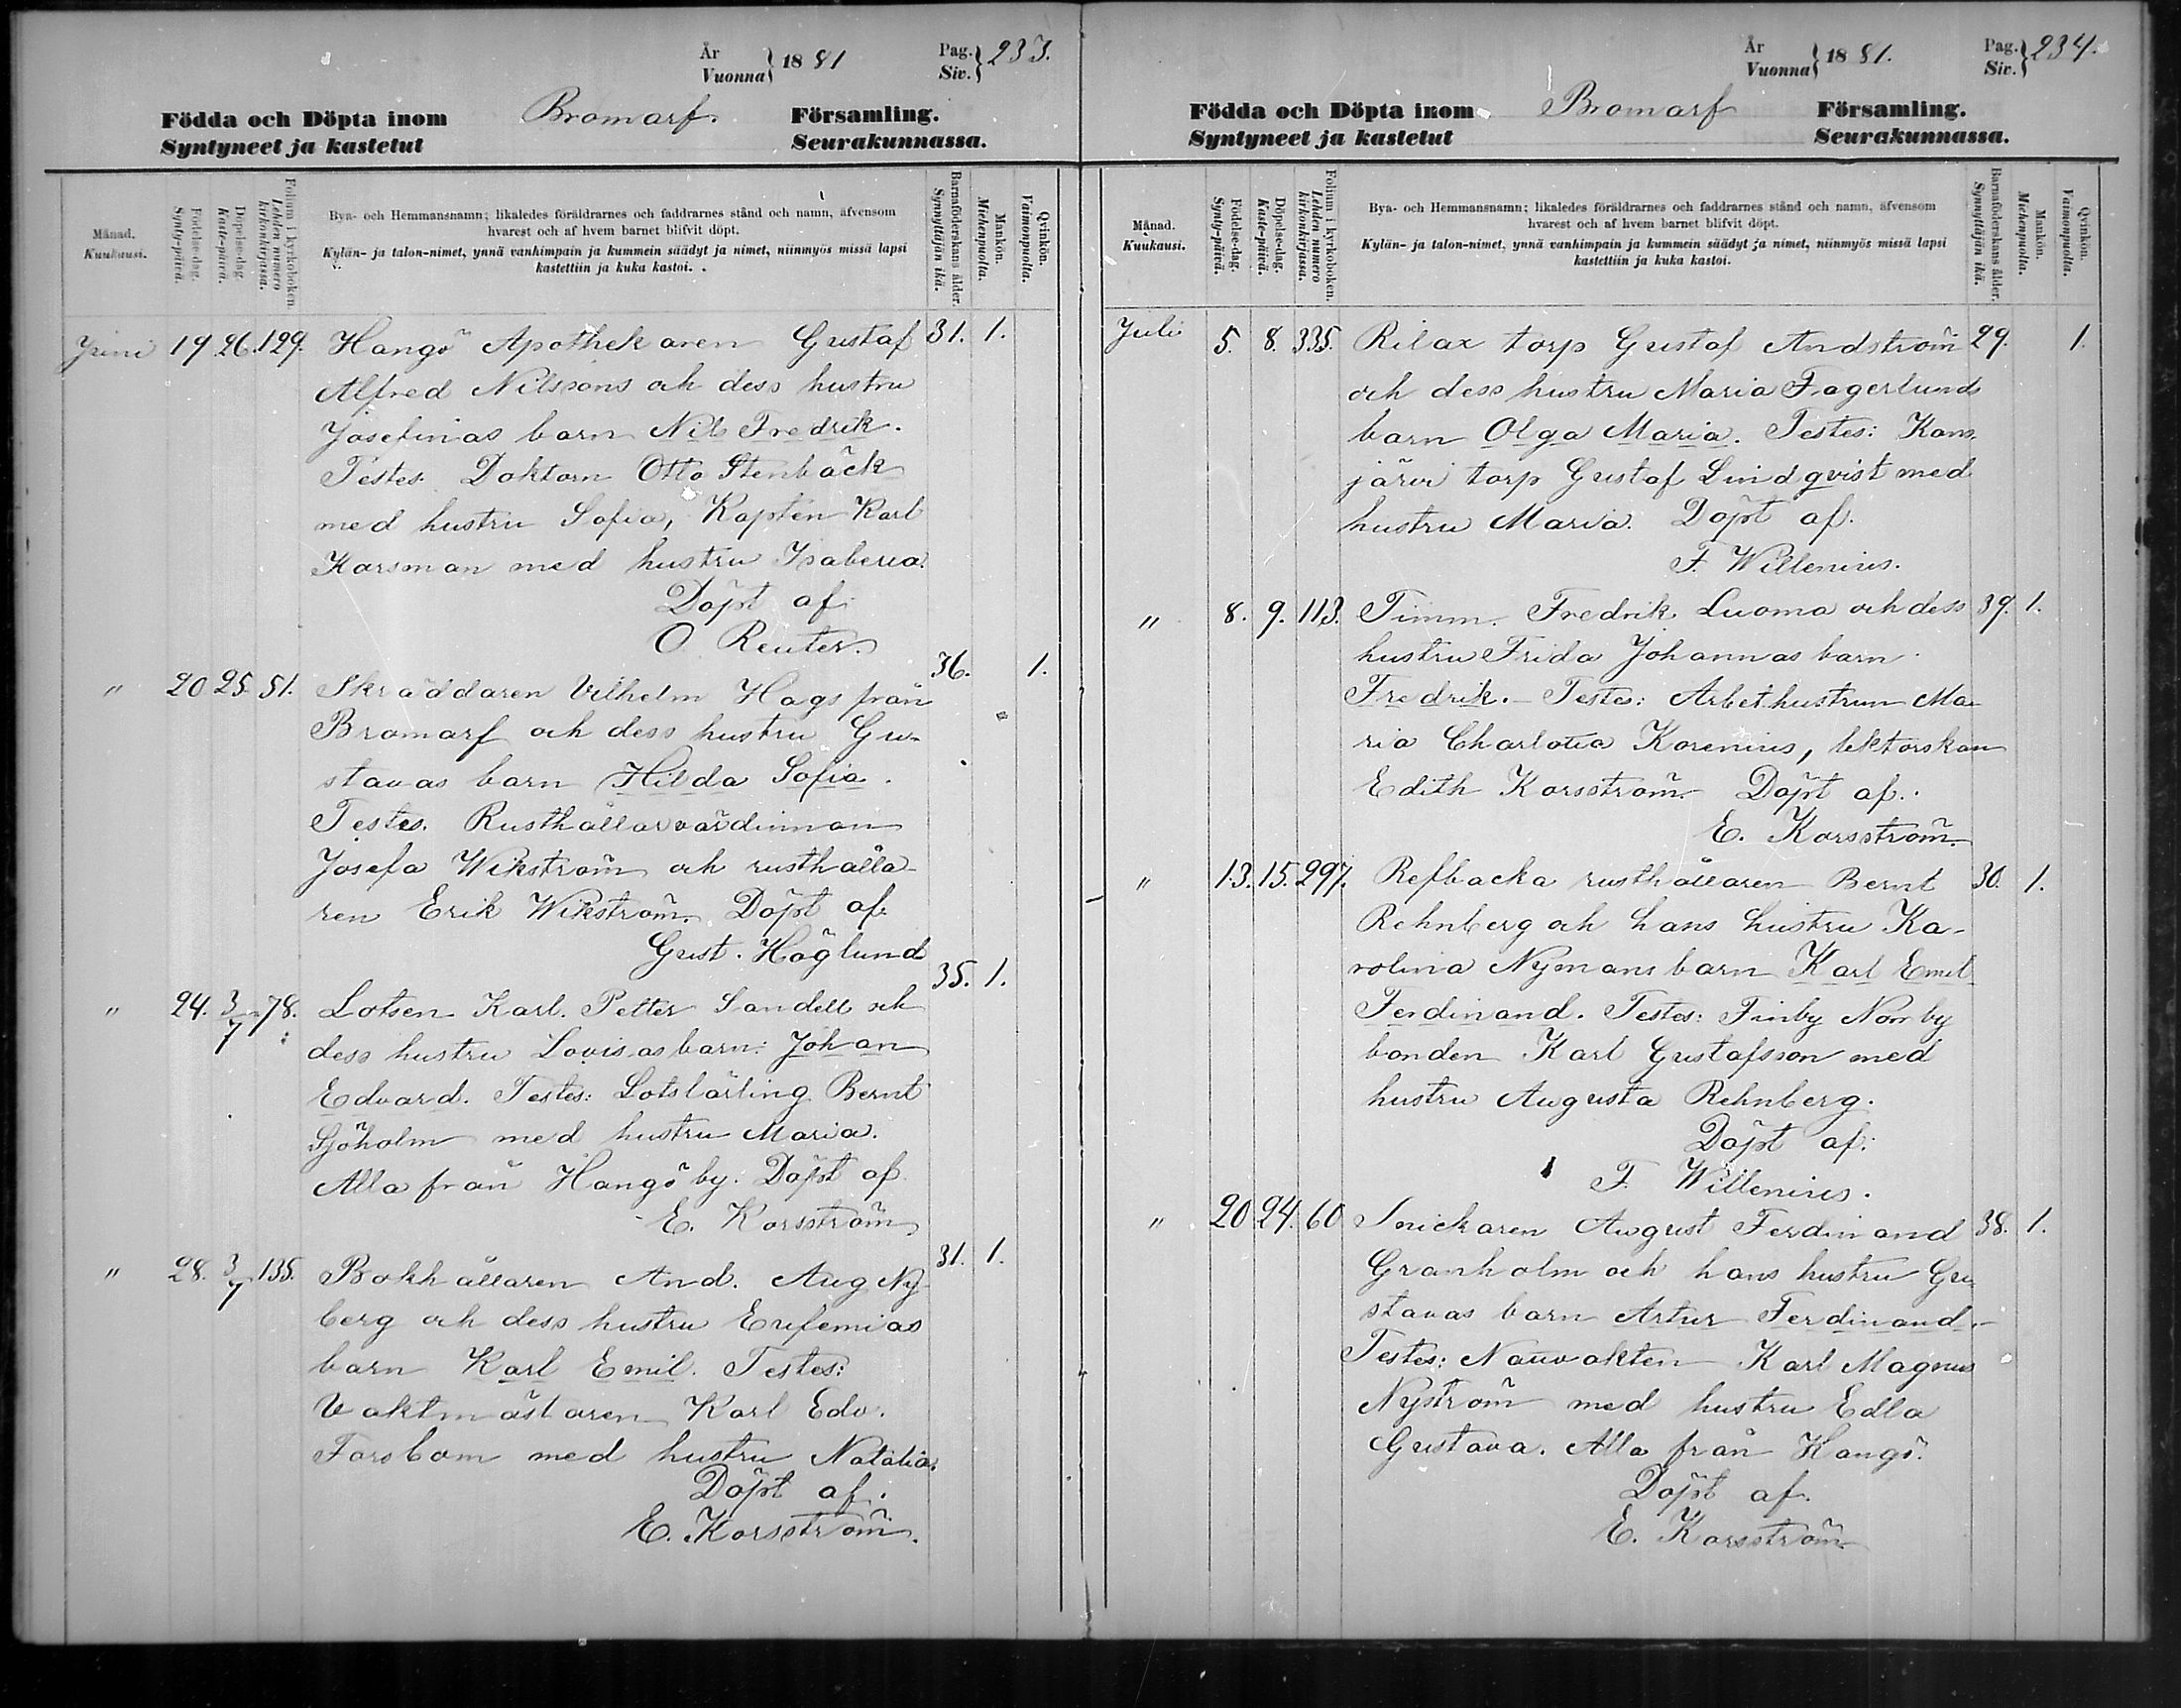 År
Vuonna } 1881
Pag.
Siv. } 233.
Födda och Döpta inom Bromarf. Församling.
Syntyneet ja kastetut Seurakunnassa.
Månad.
Kuukausi.
Födelse-dag.
Synty-päivä.
Döpelse-dag.
Kaste-päivä.
Folium i kyrkoboken.
Lehden numero kirkonkirjassa.
Bya- och Hemmansnamn; likaledes föräldrarnes och faddrarnes stånd och namn, äfvensom
hvarest och af hvem barnet blifvit döpt.
Kylän- ja talon-nimet, ynnä vanhimpain ja kummein säädyt ja nimet, niinmyös missä lapsi
kastettiin ja kuka kastoi.
Barnaföderskans ålder.
Synnyttäjän ikä.
Mankön.
Miehenpuolta.
Qvinkön.
Vaimonpuolta.
Juni 19. 26. 129. Hangö Apothekaren Gustaf 31. 1.
Alfred Nilssons och dess hustru
Josefinas barn Nils Fredrik.
Testes. Doktorn Otto Stenbäck
med hustru Sofia, Kapten Karl
Karsman med hustru Isabella.
Döpt af:
O Reuter.
" 20 25. 51. Skräddaren Vilhelm Hags från 36. 1.
Bromarf och dess hustru Gu-
stavas barn Hilda Sofia.
Testes. Rusthållarvärdinnan
Josefa Wikström och rusthålla-
ren Erik Wikström. Döpt af.
Gust. Höglund
" 24. 3/7 78. Lotsen Karl. Petter Sandell och 35. 1.
dess hustru Lovisas barn: Johan
Edvard. Testes: Lotslärling Bernt
Sjöholm med hustru Maria.
Alla från Hangö by. Döpt af
E. Korsström
" 28. 3/7 135. Bokhållaren And. Aug. Ny- 31. 1.
berg och dess hustru Eufemias
barn Karl Emil. Testes:
Vaktmästaren Karl Edv.
Forsbom med hustru Natalia.
Döpt af.
E. Korsström.
År
Vuonna } 1881.
Pag.
Siv. } 234.
Födda och Döpta inom Bromarf Församling.
Syntyneet ja kastetut Seurakunnassa.
Månad.
Kuukausi.
Födelse-dag.
Synty-päivä.
Döpelse-dag.
Kaste-päivä.
Folium i kyrkoboken.
Lehden numero kirkonkirjassa.
Bya- och Hemmansnamn; likaledes föräldrarnes och faddrarnes stånd och namn, äfvensom
hvarest och af hvem barnet blifvit döpt.
Kylän- ja talon-nimet, ynnä vanhimpain ja kummein säädyt ja nimet, niinmyös missä lapsi
kastettiin ja kuka kastoi.
Barnaföderskans ålder.
Synnyttäjän ikä.
Mankön.
Miehenpuolta.
Qvinkön.
Vaimonpuolta.
Juli 5. 8. 335. Rilax torp Gustaf Andström 29. 1.
och dess hustru Maria Fagerlunds
barn Olga Maria. Testes: Kans-
järvi torp Gustaf Lindqvist med
hustru Maria. Döpt af.
F. Willenius.
" 8. 9. 113. Timm. Fredrik Luoma och dess 39. 1.
hustru Frida Johannas barn
Fredrik. Testes: Arbethustrun Ma-
ria Charlotta Korenius, lektorskan
Edith Korsström. Döpt af.
E. Korsström.
" 13. 15. 297. Refbacka rusthållaren Bernt 30. 1.
Rehnberg och hans hustru Ka-
rolina Nymans barn Karl Emil
Ferdinand. Testes: Finby Norrby
bonden Karl Gustafsson med
hustru Augusta Rehnberg.
Döpt af:
F. Willenius.
" 20 24. 60 Snickaren August Ferdinand 38. 1.
Granholm och hans hustru Gu-
stavas barn Artur Ferdinand.
Testes: Karl Magnus
Nyström med hustru Edla
Gustava. Alla från Hangö.
Döpt af.
E. Korsström.